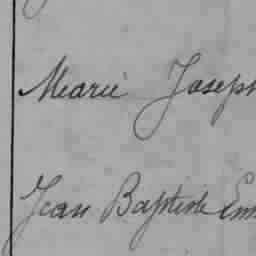 Marie Joseph
Jean Baptiste